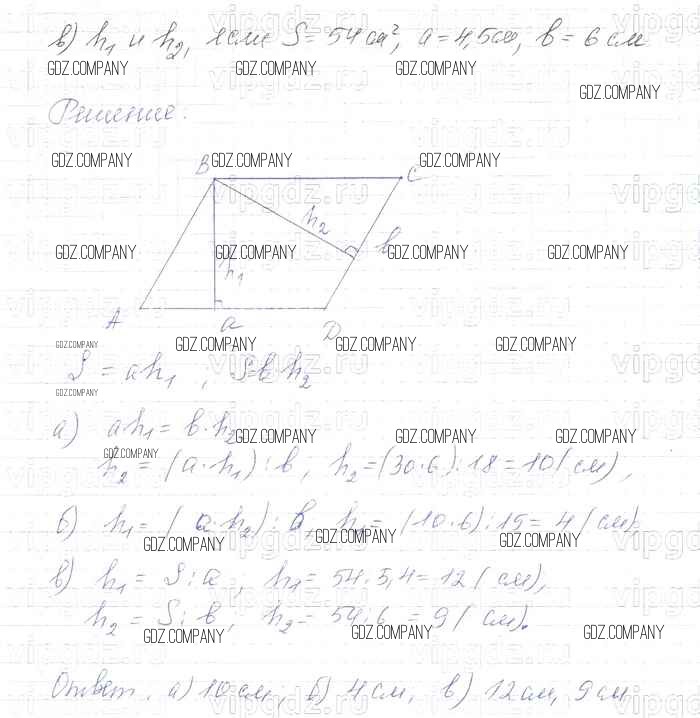 в) h₁ и h₂, если S = 54 см², a = 4,5 см, b = 6 см
GDZ.COMPANY GDZ.COMPANY GDZ.COMPANY
GDZ.COMPANY
Решение:
vipgdz.ru
GDZ.COMPANY GDZ.COMPANY GDZ.COMPANY
B C
h₂
b
GDZ.COMPANY GDZ.COMPANY GDZ.COMPANY GDZ.COMPANY
h₁
A a D
GDZ.COMPANY GDZ.COMPANY GDZ.COMPANY GDZ.COMPANY
S = ah₁ ; S=b h₂
GDZ.COMPANY
а) ah₁ = b·h₂
GDZ.COMPANY GDZ.COMPANY GDZ.COMPANY
GDZ.COMPANY
h₂ = (a·h₁) : b, h₂ = (30·6) : 18 = 10 (см),
б) h₁ = ( a·h₂) : b, h₁ = (10·6) : 15 = 4 (см),
GDZ.COMPANY GDZ.COMPANY GDZ.COMPANY
в) h₁ = S : a, h₁ = 54 : 5,4 = 12 (см),
h₂ = S : b, h₂ = 54 : 6 = 9 (см).
GDZ.COMPANY GDZ.COMPANY GDZ.COMPANY
Ответ. а) 10 см; б) 4 см, в) 12 см, 9 см